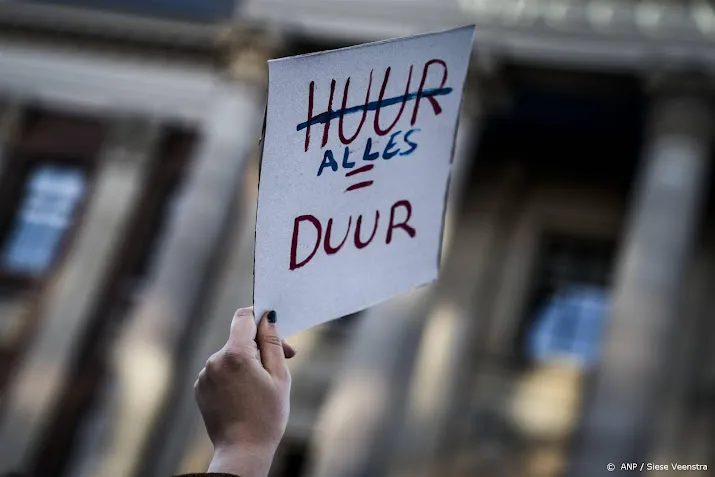 HUUR
ALLES
=
DUUR
© ANP / Siese Veenstra